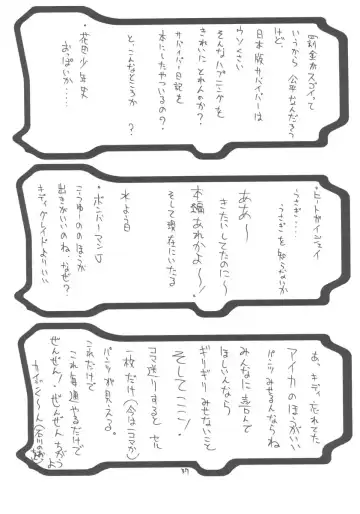 罰金がスゴイって
いうから 公平なんだろう
けど、
日本版サバイバーは
ウソくさい
そんなハプニングを
きれいに とれんのか?
サバイバー日記を
本にしたやついるの?
と、こんなところか ?
・花田少年史
おっぱいが……
・ヒートガイジェイ
うさぎ…
うさぎを 知らないか
ああ〜
きたいしてたのに〜
本編あれかよ〜!
そして現在にいたる
水よう日
・ボンバーマンJ
こっちゅーののほうが
出きがいいのね、なぜ?
キディグレイドよりいい
あ、キディ忘れてた
アイカのほうがいい
パンツみせるんならね
みんなに喜んで
ほしいんなら
ギリギリ みせないこと
そしてここ!
コマ送りすると セル
一枚だけ(今は1コマか)
パンツが見える。
これだけで
これ毎週やるだけで
ぜんぜん!ぜんぜんちがう
37